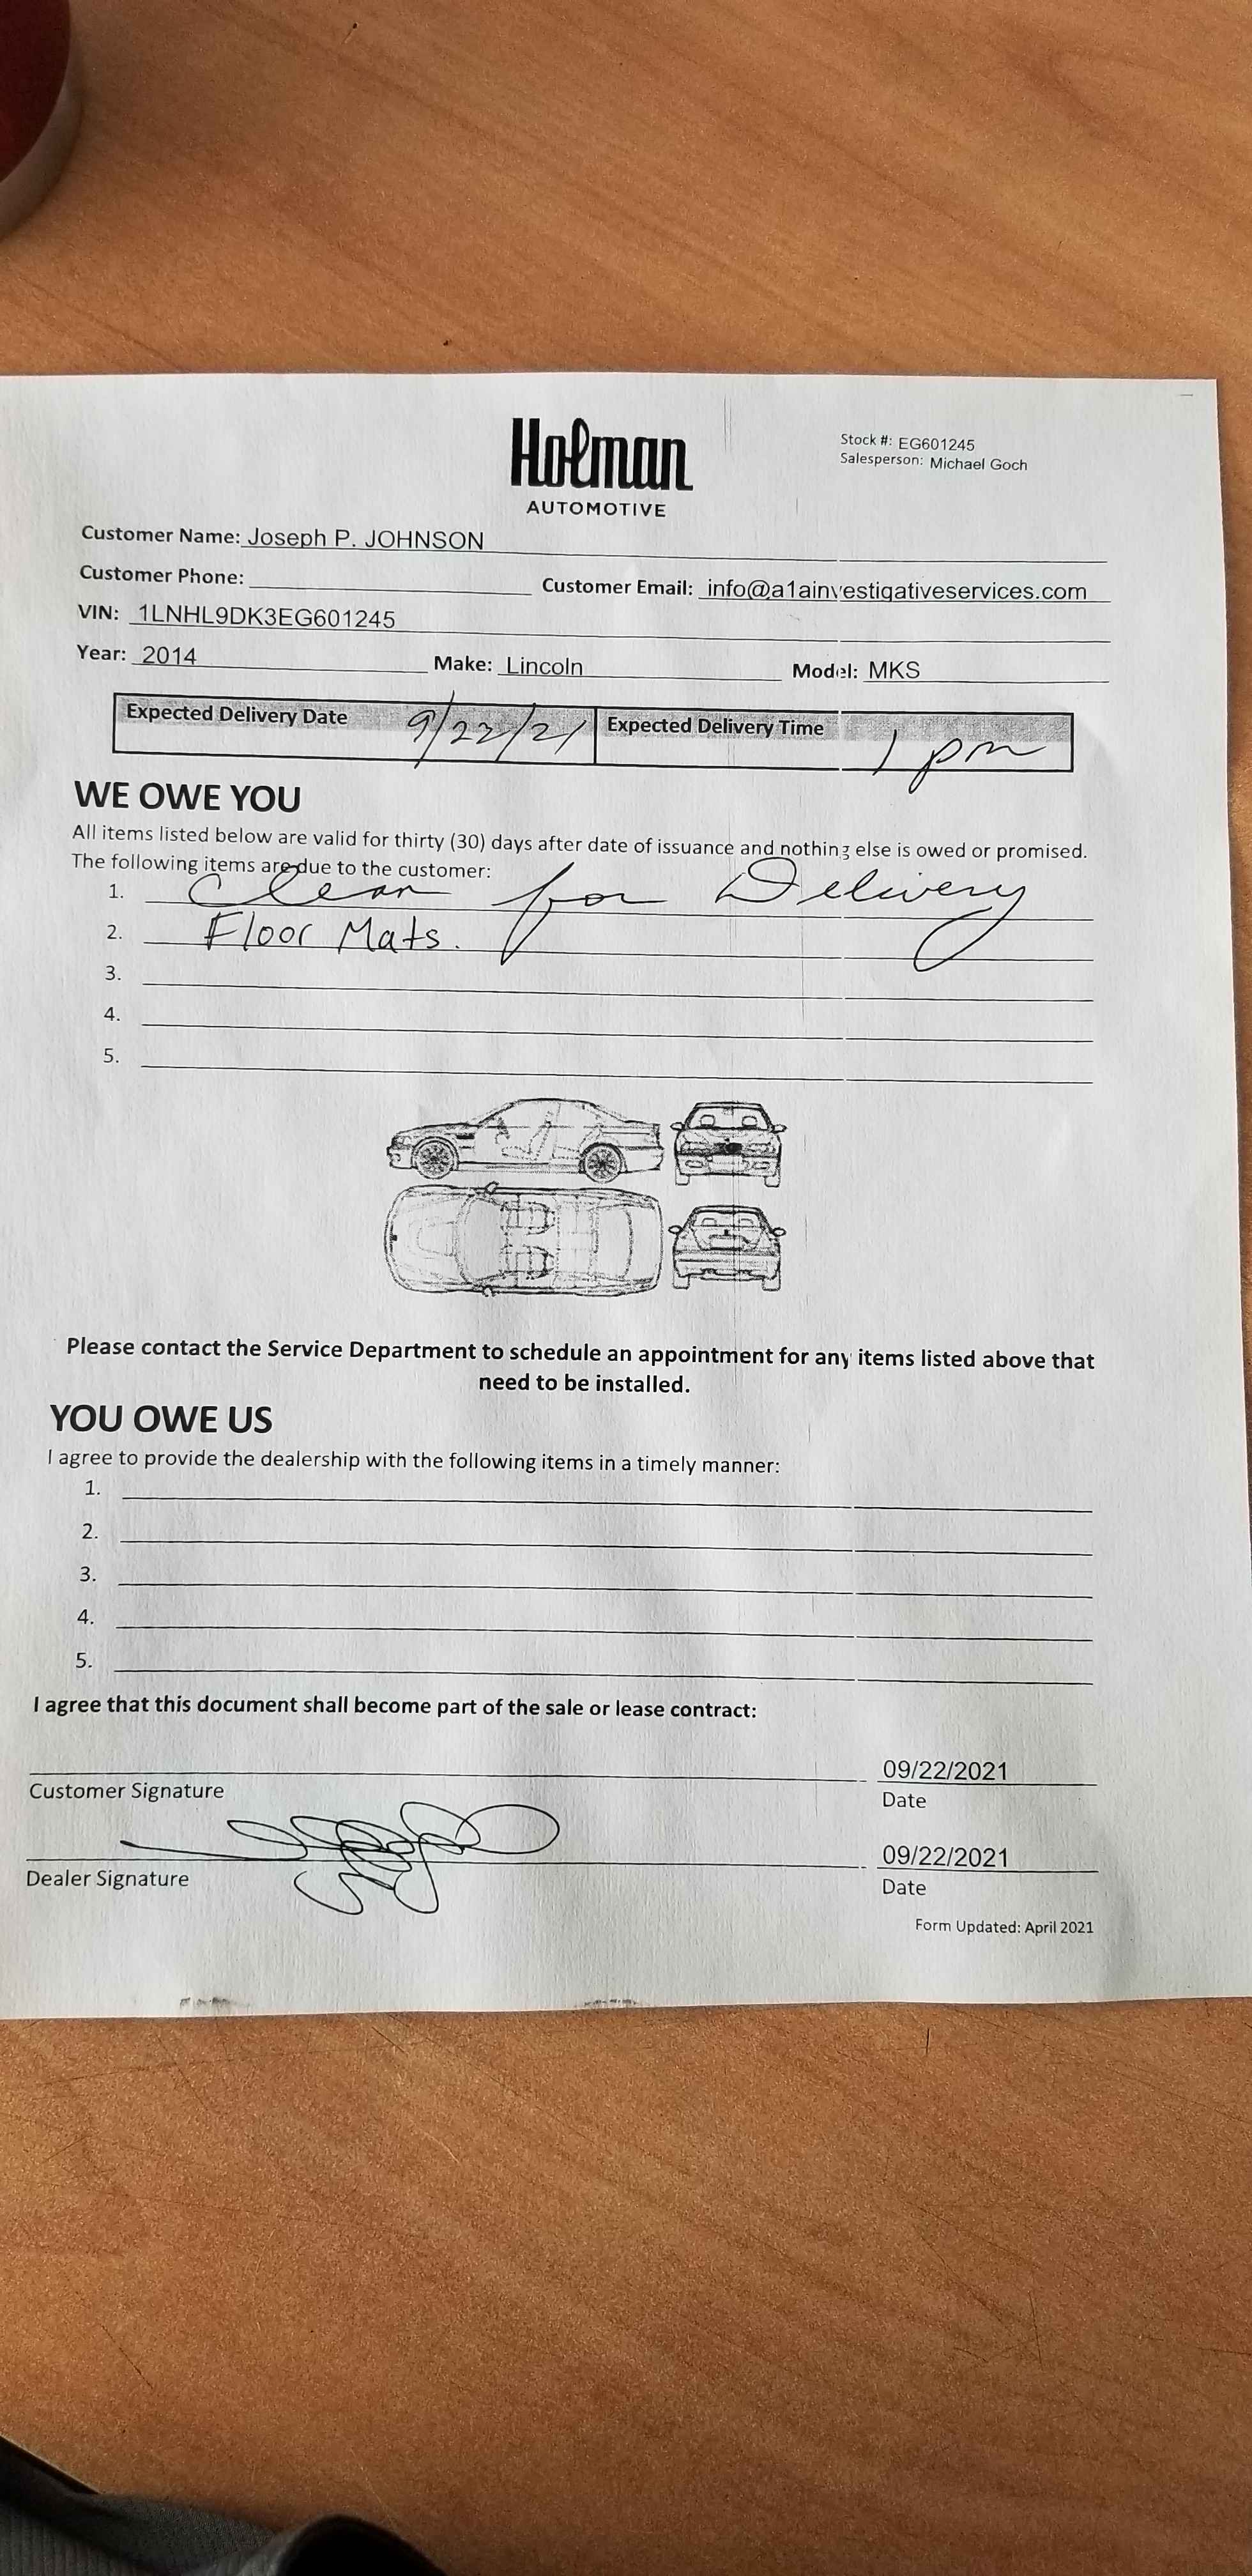 Holman
AUTOMOTIVE
Stock #: EG601245
Salesperson: Michael Goch
Customer Name: Joseph P. JOHNSON
Customer Phone:
Customer Email: info@a1ainvestigativeservices.com
VIN: 1LNHL9DK3EG601245
Year: 2014 Make: Lincoln Model: MKS
Expected Delivery Date 9/22/21 Expected Delivery Time 1 pm
WE OWE YOU
All items listed below are valid for thirty (30) days after date of issuance and nothing else is owed or promised.
The following items are due to the customer:
1. Clean for Delivery
2. Floor Mats.
3.
4.
5.
Please contact the Service Department to schedule an appointment for any items listed above that
need to be installed.
YOU OWE US
I agree to provide the dealership with the following items in a timely manner:
1.
2.
3.
4.
5.
I agree that this document shall become part of the sale or lease contract:
09/22/2021
Customer Signature Date
09/22/2021
Dealer Signature Date
Form Updated: April 2021